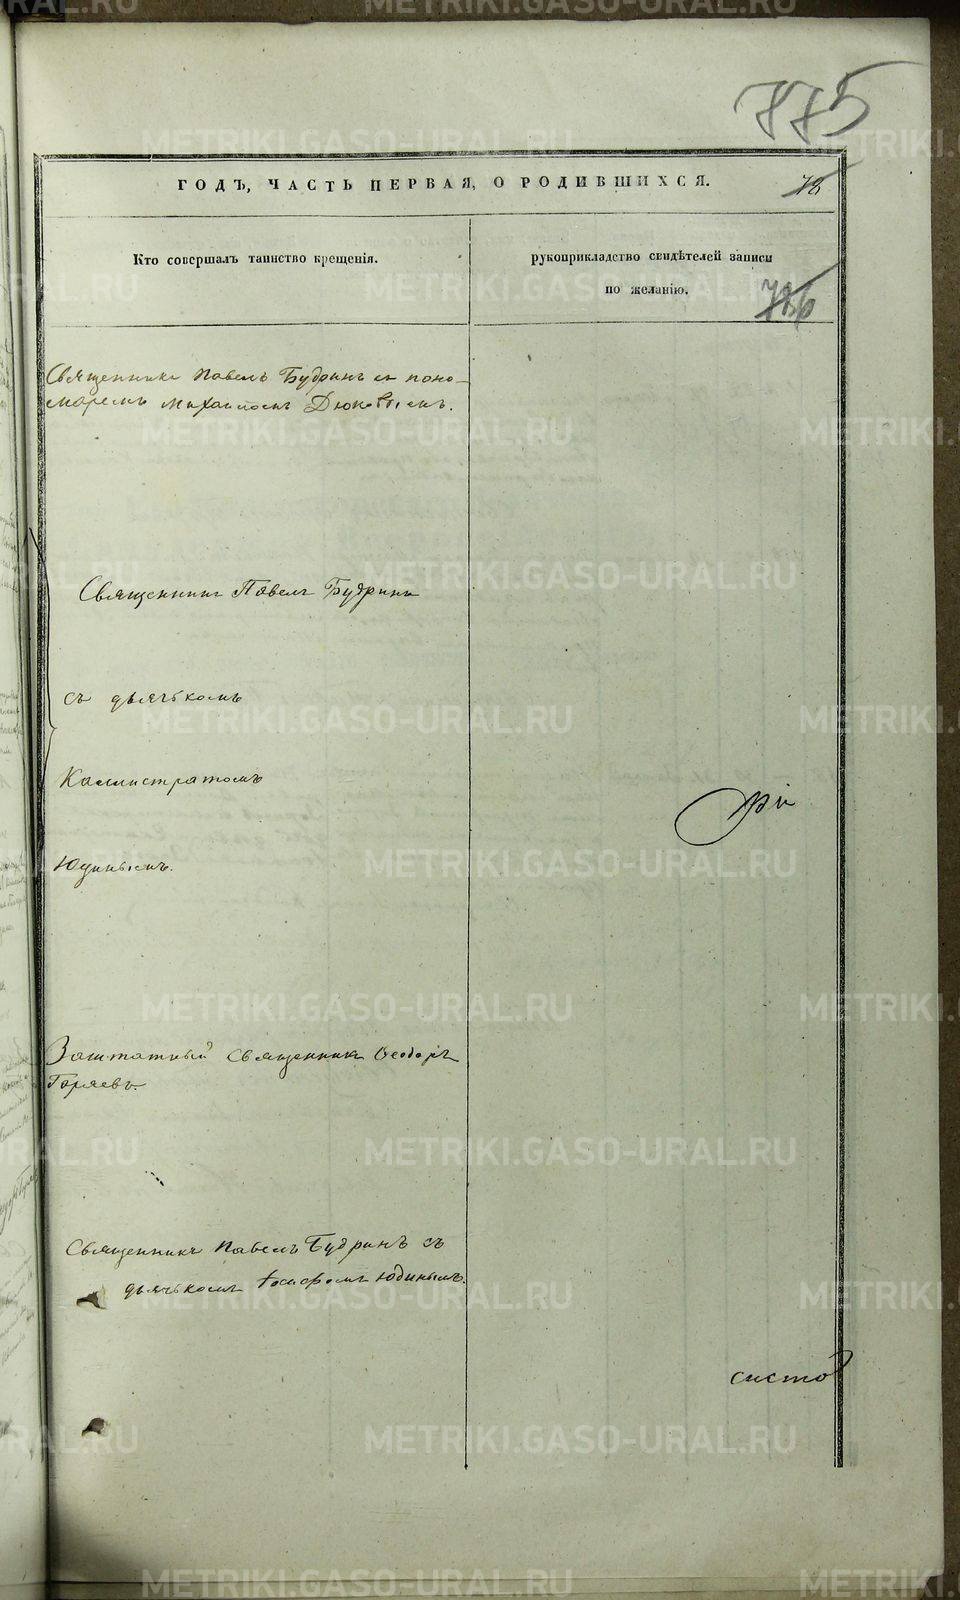 775
ГОДЪ, ЧАСТЬ ПЕРВАЯ, О РОДИВШИХСЯ.
78
Кто совершалъ таинство крещенія.
рукоприкладство свидѣтелей записи
по желанію.
Священникъ Павелъ Будринъ съ поно-
маремъ Михаиломъ
Священникъ Павелъ Будринъ
съ дьячькомъ
Каллистратомъ
Юдинымъ.
рій
Заштатный Священникъ Ѳеодоръ
Горяевъ.
Священникъ Павелъ Будринъ съ
дьячькомъ Іосифомъ Юдинымъ.
METRIKI.GASO-URAL.RU